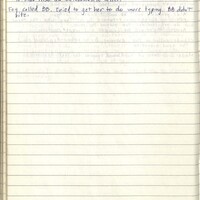 Fay called BB. Tried to get her to do more typing. BB didn't
bite.